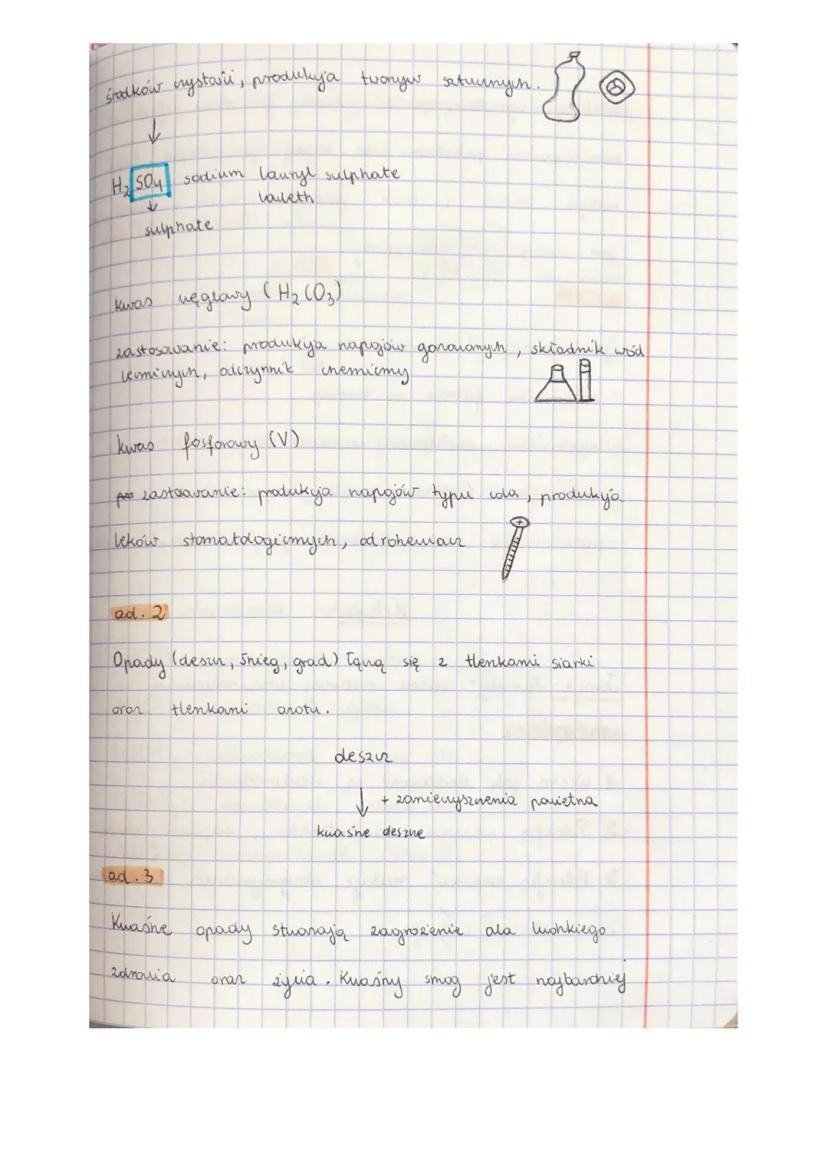 środków czystości, produkcja tworzyw sztucznych.
↓
H₂SO₄ sodium lauryl sulphate
laureth
↓
sulphate
kwas węglowy (H₂CO₃)
zastosowanie: produkcja napojów gazowanych, składnik wód
leczniczych, odczynnik chemiczny
kwas fosforowy (V)
zastosowanie: produkcja napojów typu cola, produkcja
leków stomatologicznych, odrdzewiacz
ad. 2
Opady (deszcz, śnieg, grad) łączą się z tlenkami siarki
oraz tlenkami azotu.
deszcz
↓ + zanieczyszczenia powietrza
kwaśne deszcze
ad. 3
Kwaśne opady stwarzają zagrożenie dla ludzkiego
zdrowia oraz życia. Kwaśny smog jest najbardziej